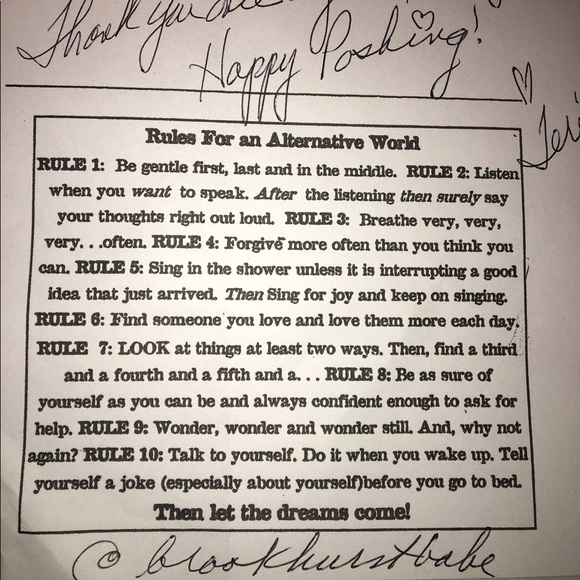 Thank you
Happy Poshing!
Rules For an Alternative World
RULE 1: Be gentle first, last and in the middle. RULE 2: Listen
when you want to speak. After the listening then surely say
your thoughts right out loud. RULE 3: Breathe very, very,
very. . .often. RULE 4: Forgive more often than you think you
can. RULE 5: Sing in the shower unless it is interrupting a good
idea that just arrived. Then Sing for joy and keep on singing.
RULE 6: Find someone you love and love them more each day.
RULE 7: LOOK at things at least two ways. Then, find a third
and a fourth and a fifth and a. . . RULE 8: Be as sure of
yourself as you can be and always confident enough to ask for
help. RULE 9: Wonder, wonder and wonder still. And, why not
again? RULE 10: Talk to yourself. Do it when you wake up. Tell
yourself a joke (especially about yourself)before you go to bed.
Then let the dreams come!
@brookhurstbabe